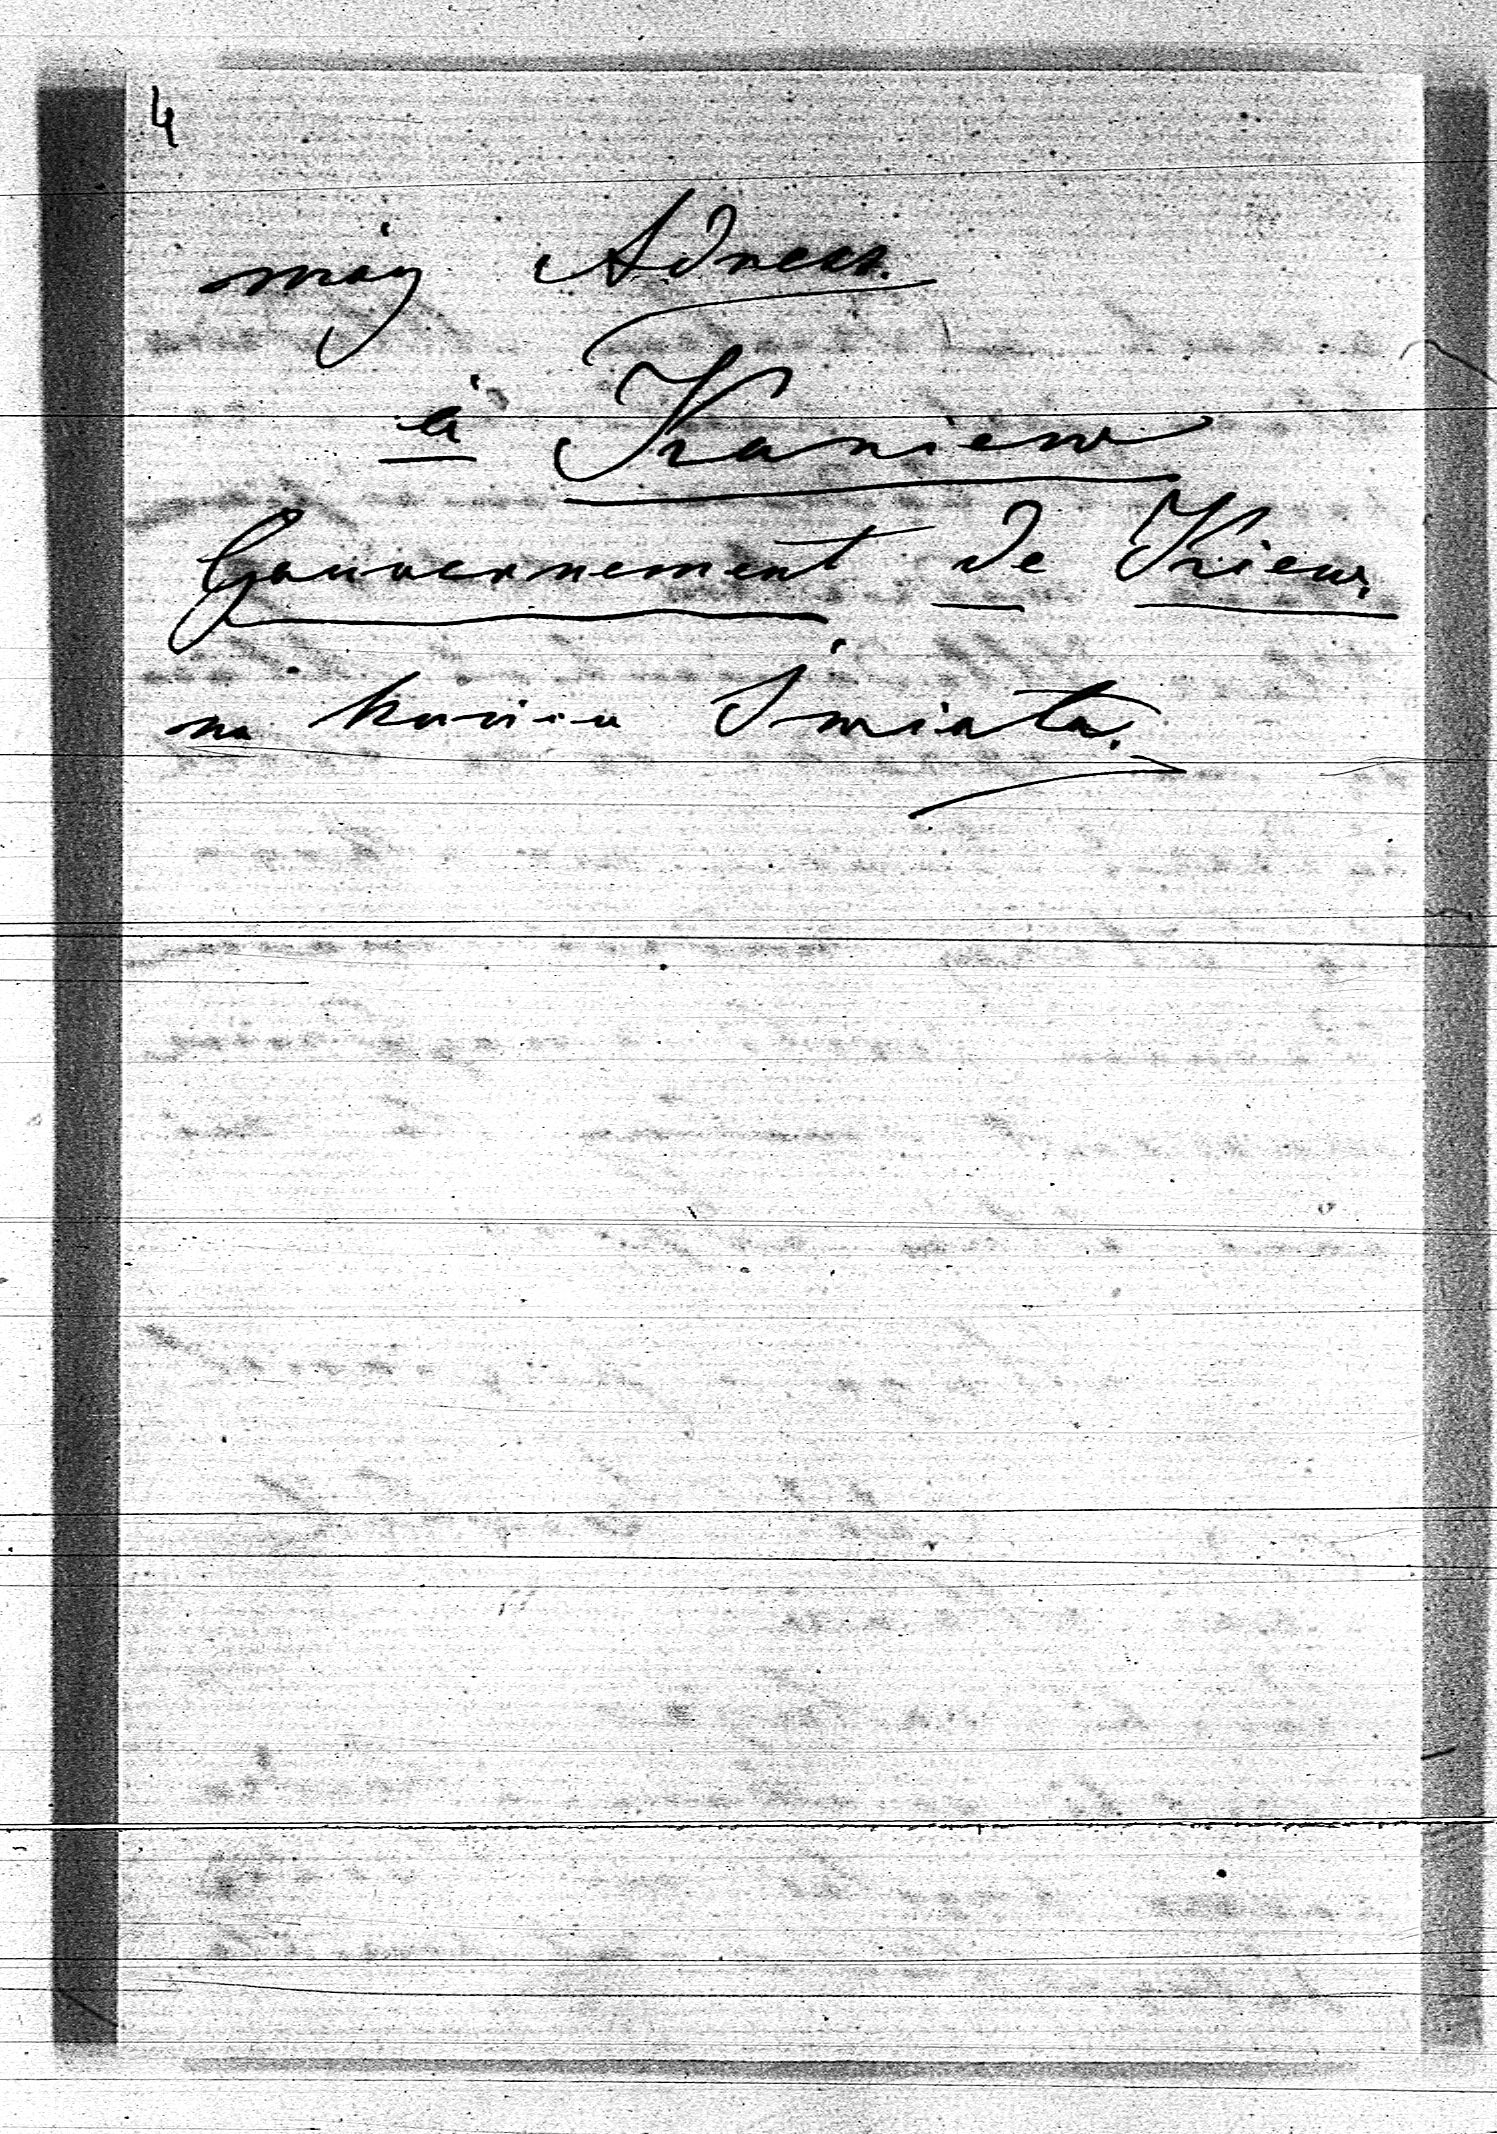 4
mój Adress.
à Kaniew
Gouvernement de Kiew.
na końcu Świata.